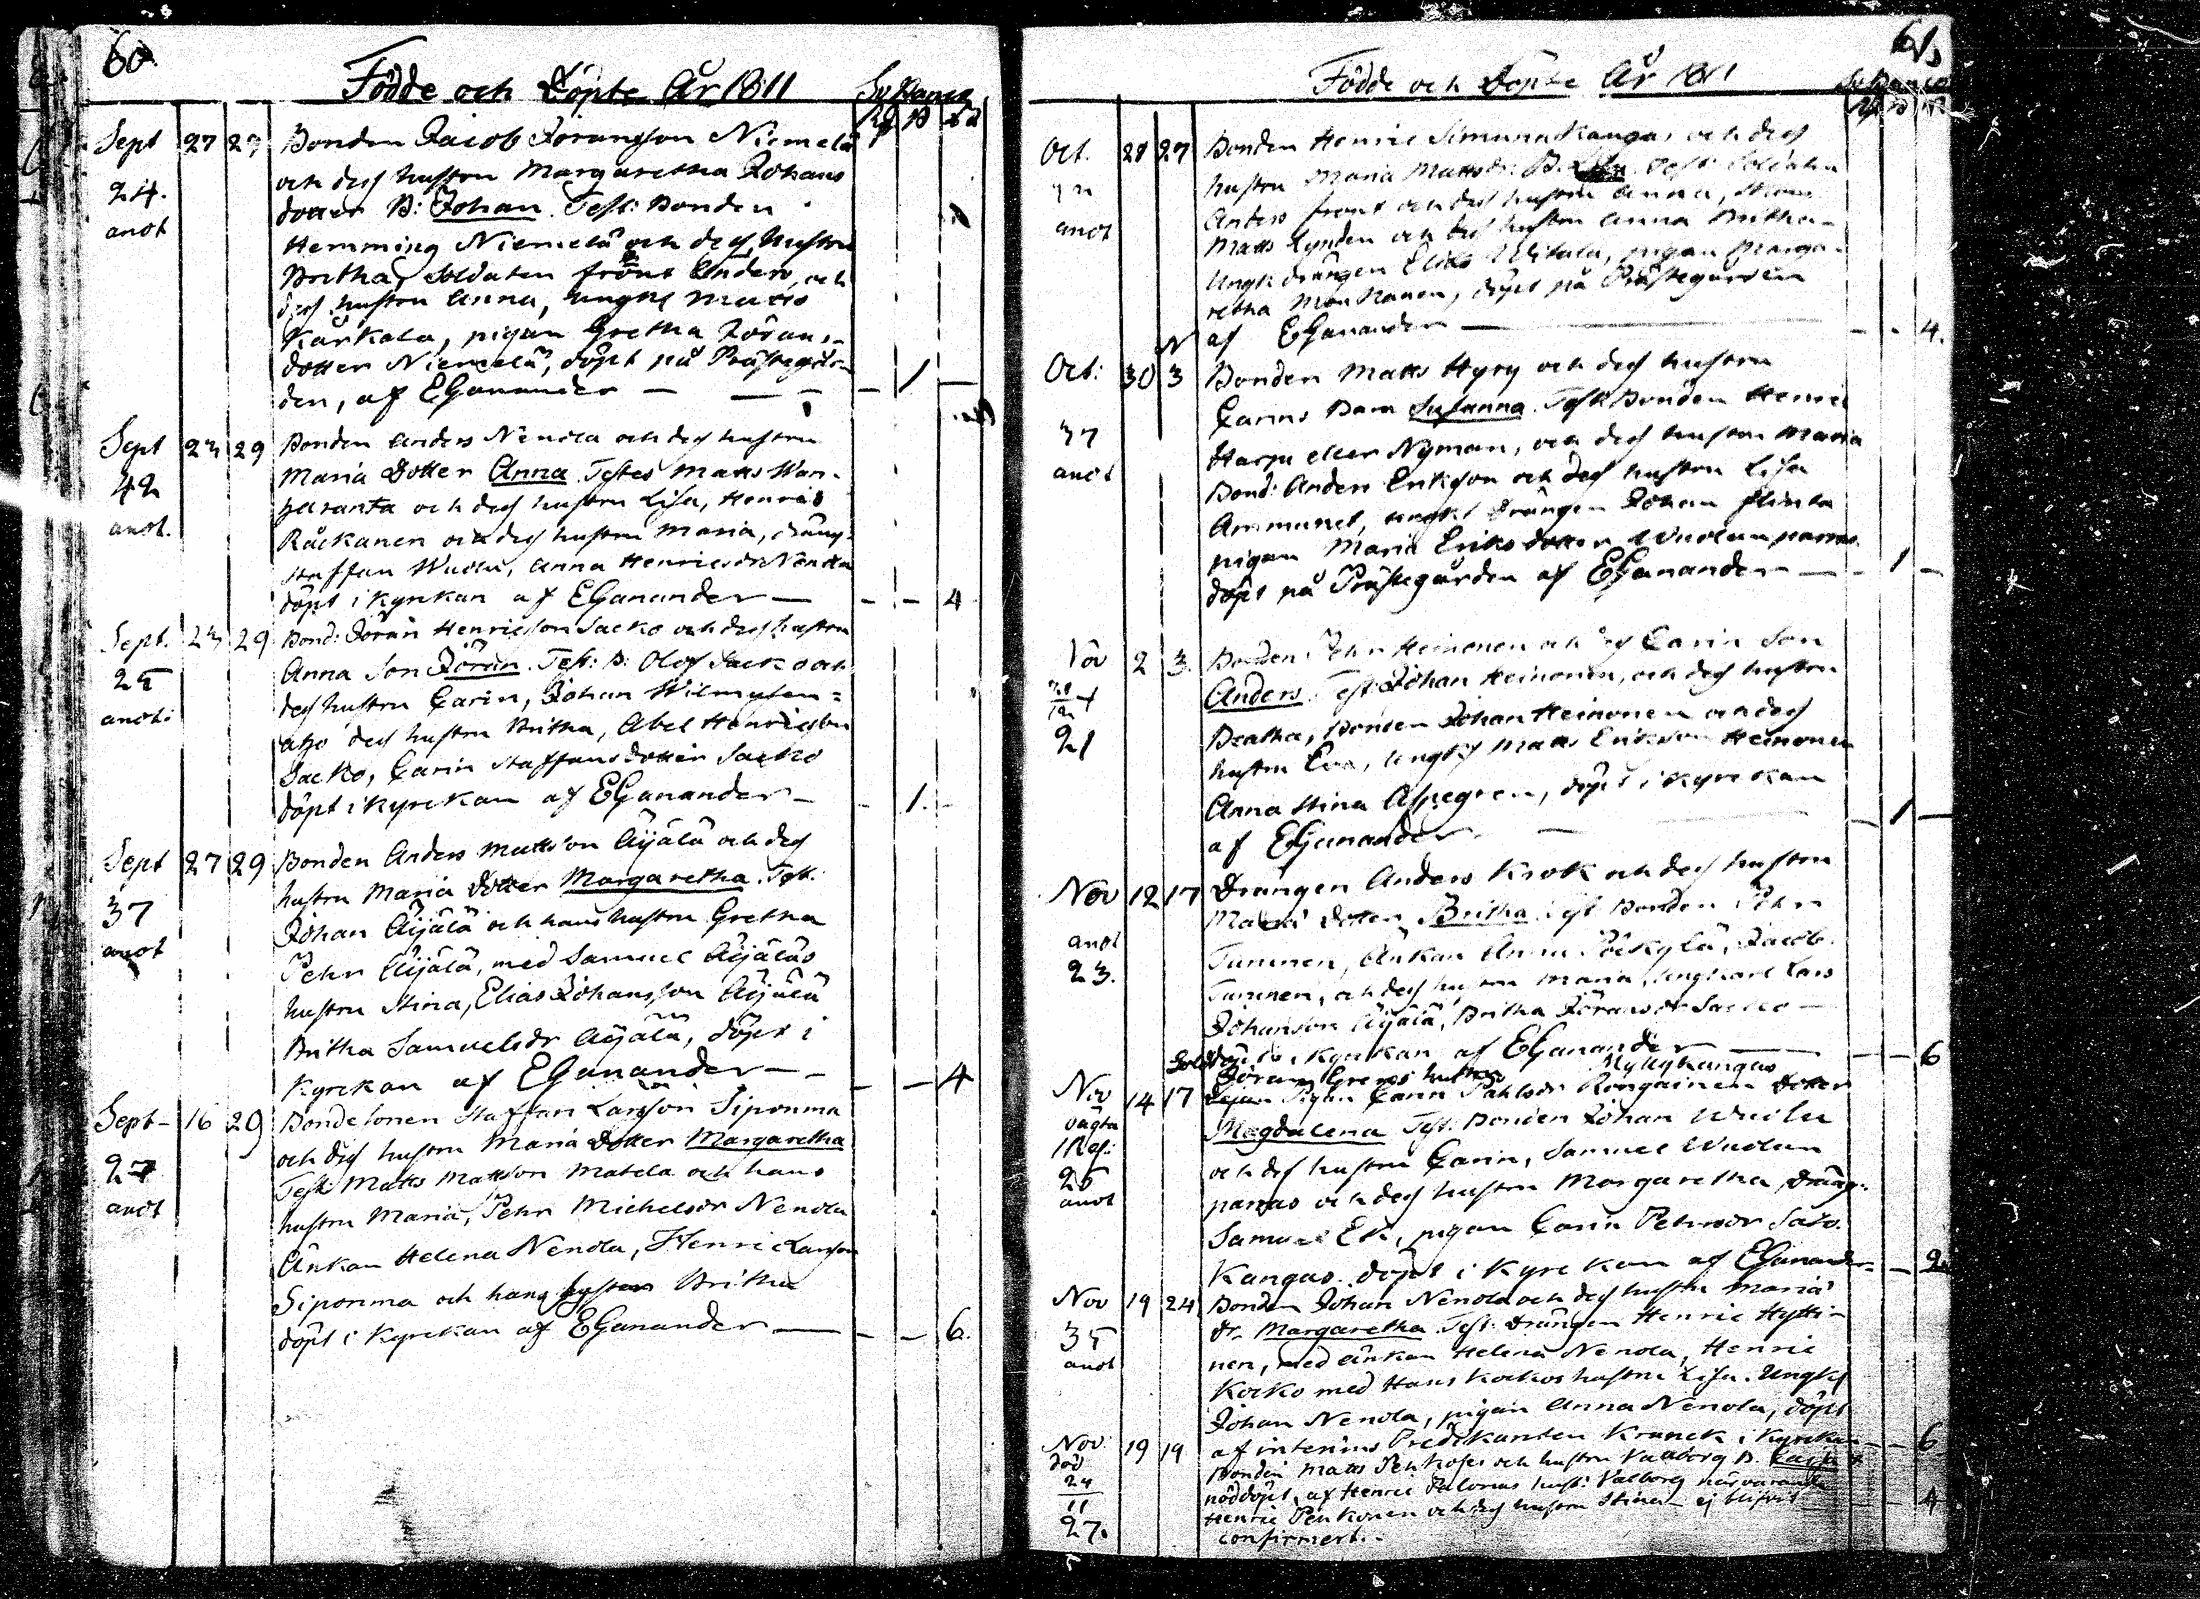 60
Födde och Döpte År 1811
Sept 27 29 Bonden Jacob Joransson Niemelä
24. och dess hustru Margaretha Johans
anot dotter B: Johan. Test: Bonden
Hemming Niemelä och dess hustru
Britha, Soldaten Anders, och
dess hustru Anna, ungkl Matts
Karkola, pigan Gretha Jörans-
dotter Niemelä, döpt på Prästegår-
den, af EGanander — — — 1 —
Sept 29 Bonden Anders Nenola och dess hustru
42 Maria Dotter Anna Testes Matts Wan-
anot. haranta och dess hustru Lisa, Henric
Räckanen och dess hustru Maria, dräng
Staffan Wuolu, Anna Henricsdr Nenola
döpt i Kyrkan af EGanander — — — 4
Sept. 29 Bond: Jöran Henricsson Sacko och dess hustru
25 Anna Son Jöran. Test: B: Olof Sacko och
anot: dess hustru Carin, Johan
dess hustru Britha, Abel Henricsson
Sacko, Carin Staffansdotter Sacko
döpt i Kyrckan af EGanander — — 1. —
Sept 27 29 Bonden Anders Mattson Äijälä och dess
37 hustru Maria Dotter Margaretha. Test:
anot Johan Äijälä och hans hustru Gretha
Pehr Äijälä, med Samuel Äijäläs
hustru Stina, Elias Johansson Äijälä
Britha Samuelsdr Äijälä, döpt i
Kyrckan af EGanander — — — 4
Sept — 16 29 Bondesonen Staffan Larsson Siponma
27 och dess hustru Maria Dotter Margaretha
anot Test: Matts Mattson Matela och hans
hustru Maria, Pehr Michelsdr Nenola
Änkan Helena Nenola, Henric Larsson
Siponma och hans syster Britha
döpt i Kyrckan af EGanander — — — 6.
61
Födde och Döpte År 1811
Oct. 27 Bonden Henric Simunankangas och dess
hustru Maria Mattsdr: B. Test: Soldaten
anot Anders och dess hustru Anna,
Matts Lynden och dess hustru Anna Britha
Ungk: drängen Elias Witala, pigan Marga-
retha Monkanen, döpt på Prästegården
af EGanander — — 4.
Oct: 30 3 Bonden Matts Hyry och dess hustru
Carins Barn Susanna. Test: Bonden Henric
37 Harju eller Nyman, och dess hustru Maria
anot Bond: Anders Ericsson och dess hustru Lisa
Ammunet, ungkl drängen Johan Flinta
pigan Maria Eriksdotter Wuolunparras
döpt på Prästegården af EGanander — — 1 —
Nov 2 3. Bonden Pehr Heinonen och dess Carin Son
Anders. Test: Johan Heinonen, och dess hustru
21 Beatha, Bonden Johan Heinonen och dess
hustru Eva, ungkl Matts Ericsson Heinonen
Anna Stina Alpegren, döpt i Kyrckan
af EGanander — — 1 —
Nov 12 17 Drängen Anders Krok och dess hustru
Maria Dotter Britha Test: Bonden Pehr
anot Tuminen, Änkan Anna Pöckylä, Jacob
23. Tuminen, och dess hustru Maria, ungkarl Lars
Johansson Äijälä, Britha Jöransdr Sacko —
döpt i Kyrckan af EGanander — — 6
Sold: Jöran Grens hustru Myllykangas
Nov 14 17 Pigan Carin Påhlsdr Rongainen Dotter
oägta Magdalena Test: Bonden Johan Wuolu
och dess hustru Carin, Samuel Wuolun
25 parras och dess hustru Margaretha, Dräng
anot Samuel Ek, pigan Carin Pehrsdr Salo
Kangas. döpt i Kyrckan af EGanander — — 2
Nov 19 24 Bonden Johan Nenola och dess hustru Maria
35 dr. Margaretha. Test: Drängen Henric Hytti-
anot nen, med änkan Helena Nenola, Henric
Kocko med Hans Kockos hustru Lisa. Ungkl
Johan Nenola, pigan Anna Nenola, döpt
af interims Predikanten Kranck i Kyrckan — — 6
Nov 19 19 Bonden Matts Penkoses och hustru Valborg B.
död nöddöpt, af Henric hust: Valborg närvarande
24/11 Henric Penkonen och dess hustru Stina — ej blifvit — 4
27. confirmert. —